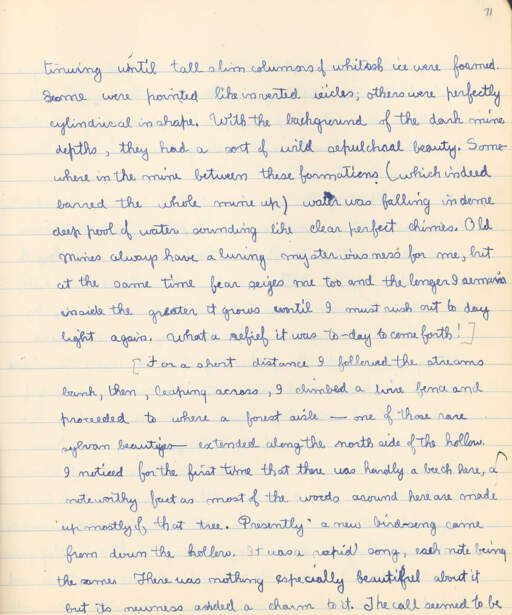 71
tinuing until tall slim columns of whitish ice were formed.
Some were pointed like inverted icicles; others were perfectly
cylindrical in shape. With the background of the dark mine
depths, they had a sort of wild sepulchral beauty. Some-
where in the mine between these formations (which indeed
barred the whole mine up) water was falling in some
deep pool of water sounding like clear perfect chimes. Old
mines always have a luring mysteriousness for me, but
at the same time fear seizes me too and the longer I remain
inside the greater it grows until I must rush out to day
light again. What a relief it was to-day to come forth!]
[For a short distance I followed the streams
bank, then, leaping across, I climbed a wire fence and
proceeded to where a forest aisle — one of those rare
sylvan beauties — extended along the north side of the hollow.
I noticed for the first time that there was hardly a beech here, a
noteworthy fact as most of the woods around here are made
up mostly of that tree. Presently a new bird-song came
from down the hollow. It was a rapid song, each note being
the same. There was nothing especially beautiful about it
but its newness added a charm to it. The call seemed to be